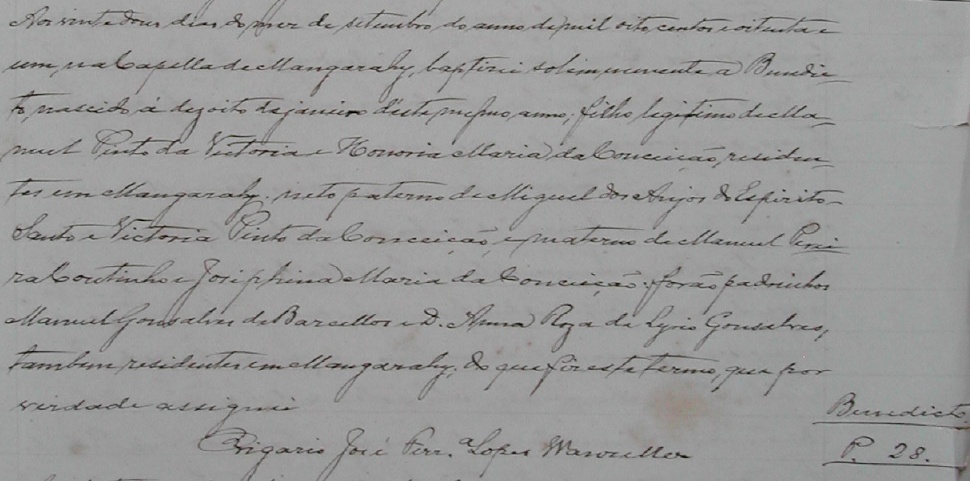 Aos vinte dous dias do mez de setembro do anno de mil oito centos e oitenta e
um, na Capella de Mangarahy, baptizei solemnemente a Benedic-
to, nascido á dezoito de janeiro d'este mesmo anno, filho legitimo de Ma-
nuel Pinto da Victoria e Honoria Maria da Conceição, residen-
tes em Mangarahy; neto paterno de Miguel dos Anjos do Espirito-
Santo e Victoria Pinto da Conceição, e materno de Manuel Perei-
ra Coutinho e Josephina Maria da Conceição: forão padrinhos
Manuel Gonsalves de Barcellos e D. Anna Roza de Lyrio Gonsalves,
tambem residentes em Mangarahy; do que fiz este termo, que por
verdade assignei
O Vigario José Ferr.ª Lopes
Benedicto.
P. 28.